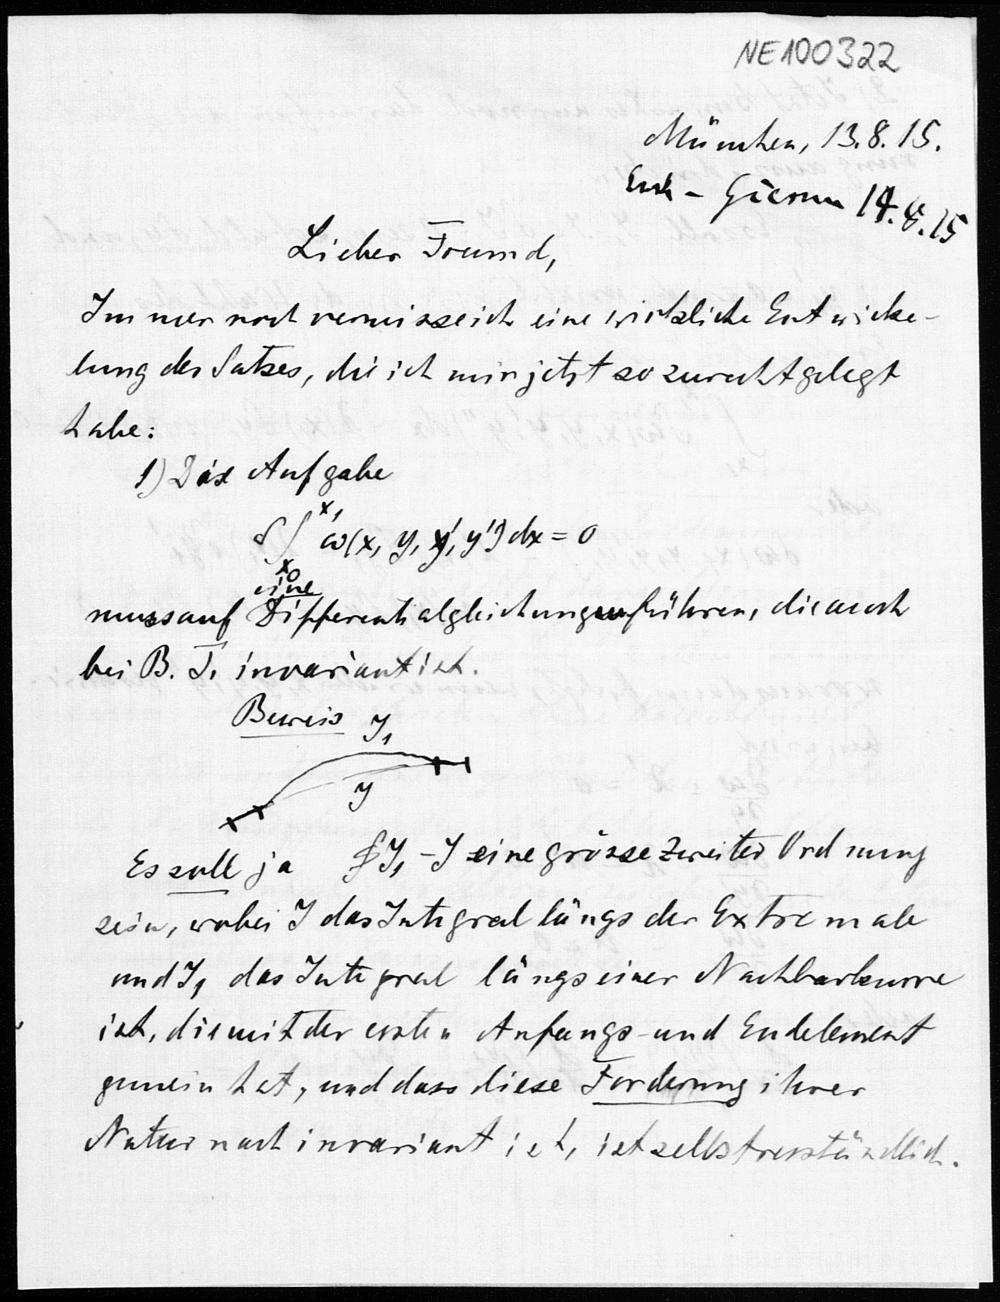 NE100322
München, 13.8.15.
14.8.15
Lieber Freund,
Immer noch vermisse ich eine wirkliche Entwicke-
lung des Satzes, die ich mir jetzt so zurechtgelegt
habe:
1) Die Aufgabe
δ∫ₓ₀ˣ¹ ω(x, y, y', y'') dx = 0
eine
muss auf Differentialgleichung führen, die auch
bei B. T. invariant ist.
Beweis J₁
J
Es soll ja J₁ - J eine grösse zweiter Ordnung
sein, wobei J das Integral längs der Extremale
und J₁ das Integral längs einer Nachbarkurve
ist, die mit der ersten Anfangs- und Endelement
gemein hat, und dass diese Forderung ihrer
Natur nach invariant ist, ist selbstverständlich.